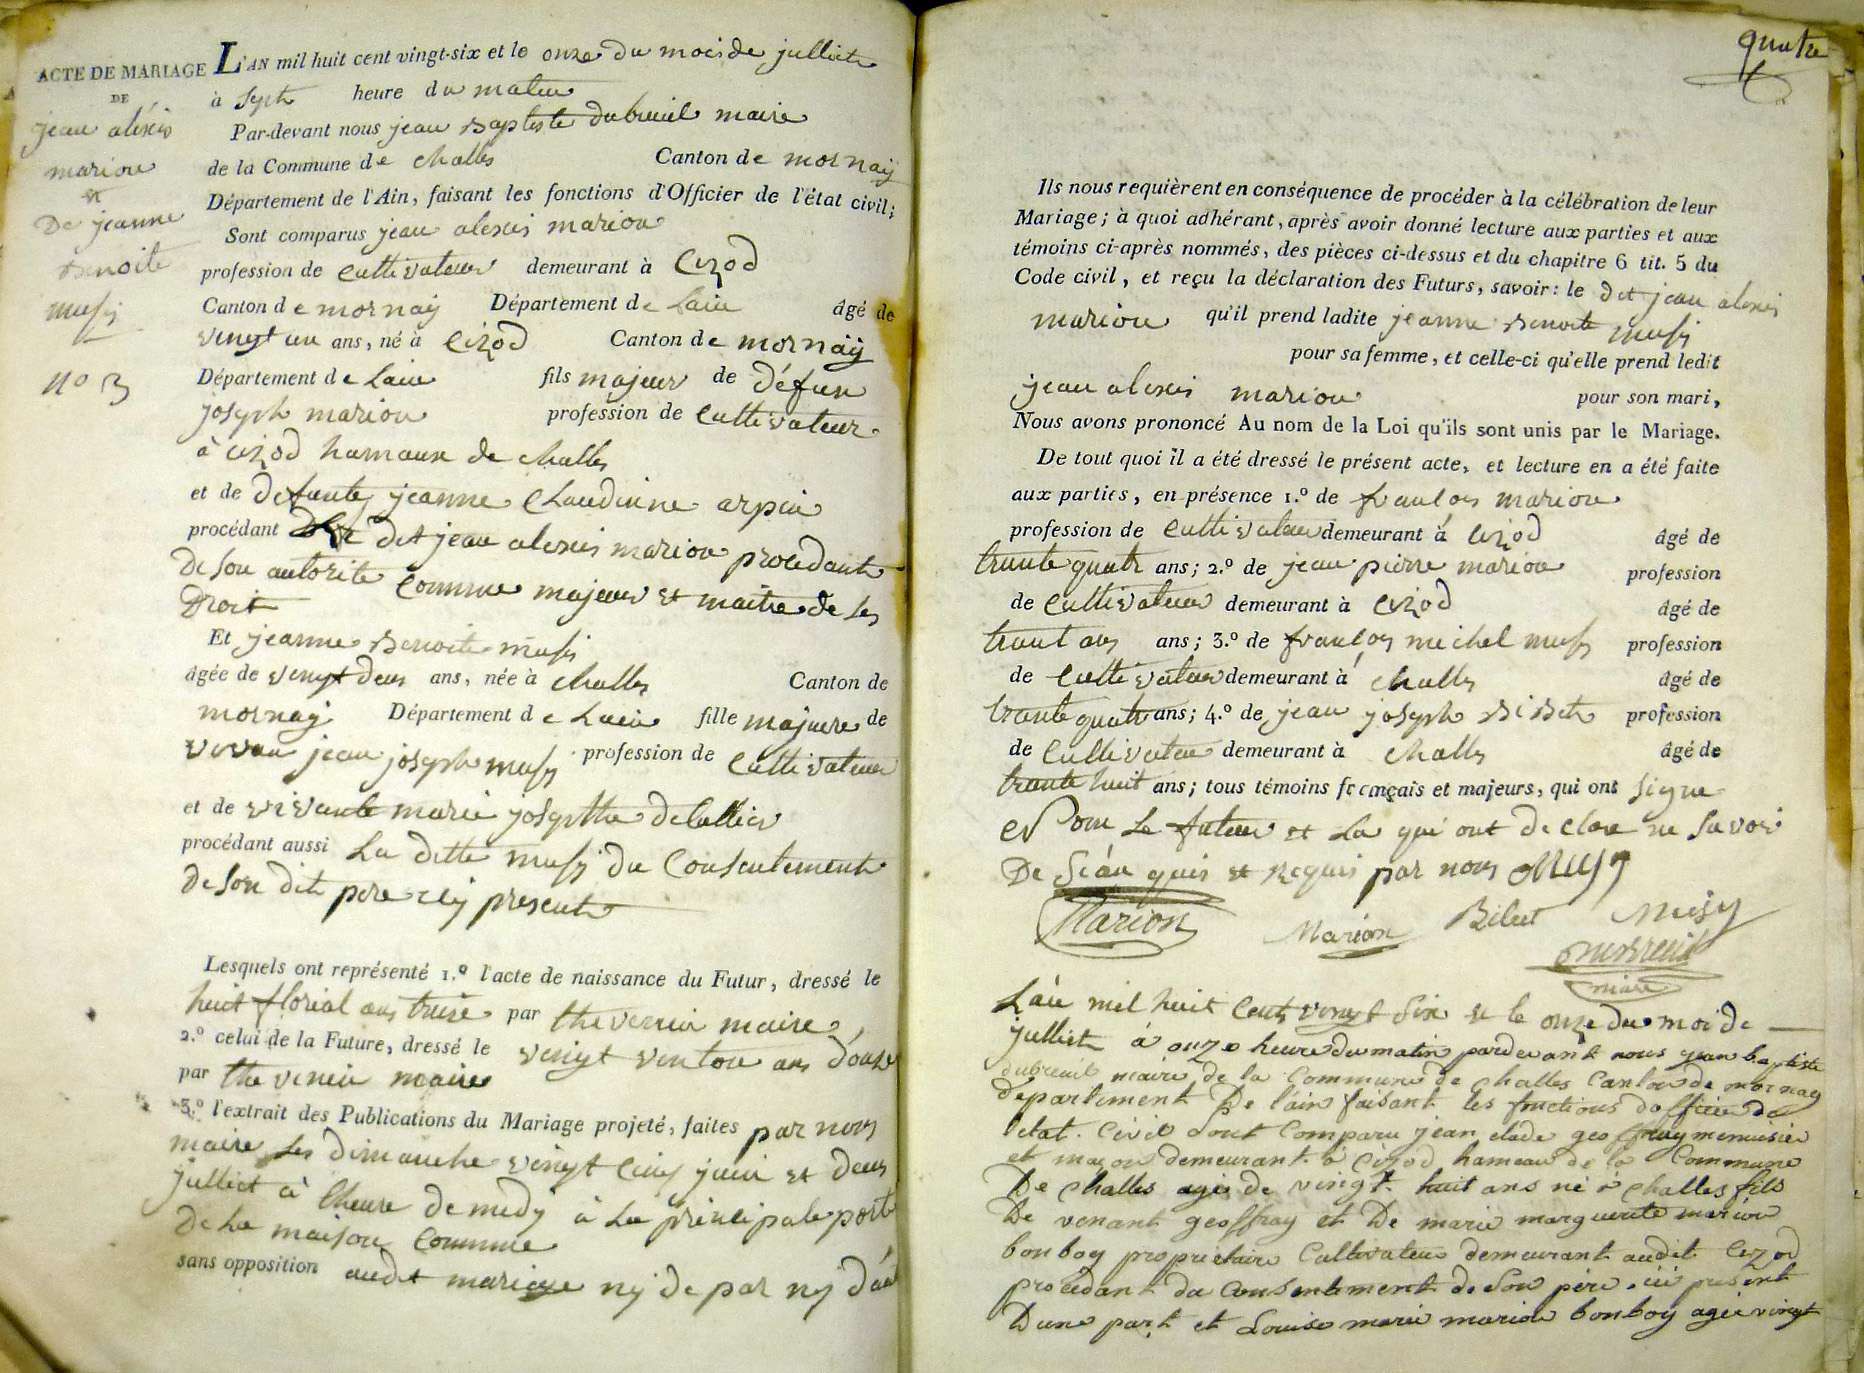 ACTE DE MARIAGE
DE
jean aléxis
marion
et
De jeanne
Benoite
musy
N° 3
L'AN mil huit cent vingt-six et le onze du mois de julliet
à sept heure du matin
Par-devant nous jean Baptiste dubreuil maire
de la Commune de challes Canton de mornay
Département de l'Ain, faisant les fonctions d'Officier de l'état civil;
Sont comparus jean alexis marion
profession de cultivateur demeurant à Cizod
Canton de mornay Département de Lain âgé de
vingt un ans, né à Cizod Canton de mornay
Département de Lain fils majeur de défun
joseph marion profession de cultivateur
à cizod hamaux de challes
et de defunte jeanne Claudinne arpin
procédant Le dit jean alexis marion procedant
de son autorité comme majeur et maitre de ses
Droit
Et jeanne Benoite musy
âgée de vingt deux ans, née à challes Canton de
mornay Département de Lain fille majeure de
vivan jean joseph musy profession de cultivateur
et de vivante marie josepthe
procédant aussi La ditte musy du Consentement
de son dit pere icy present
Lesquels ont représenté 1.º l'acte de naissance du Futur, dressé le
huit florial ans treise par thevenin maire,
2.º celui de la Future, dressé le vingt ventou ans d'ouse
par thevenin maire
3.º l'extrait des Publications du Mariage projeté, faites par nous
maire les dimanche vingt cinq juin et deux
julliet à l'heure de medy à la principale porte
de La maison Commune
sans opposition audit mariage ny de par ny d'au
quatre
Ils nous requièrent en conséquence de procéder à la célébration de leur
Mariage; à quoi adhérant, après avoir donné lecture aux parties et aux
témoins ci-après nommés, des pièces ci-dessus et du chapitre 6 tit. 5 du
Code civil, et reçu la déclaration des Futurs, savoir: le dit jean alexis
marion qu'il prend ladite jeanne Benoite musy
pour sa femme, et celle-ci qu'elle prend ledit
jean alexis marion pour son mari,
Nous avons prononcé Au nom de la Loi qu'ils sont unis par le Mariage.
De tout quoi il a été dressé le présent acte, et lecture en a été faite
aux parties, en présence 1.º de francois marion
profession de cultivateur demeurant à cizod âgé de
trante quatr ans; 2.º de jean pierre marion profession
de cultivateur demeurant à cizod âgé de
trant ans ans; 3.º de françoy michel musy profession
de cultivateur demeurant à challes âgé de
trante quatr ans; 4.º de jean joseph Bibet profession
de cultivateur demeurant à challes âgé de
trante huit ans; tous témoins français et majeurs, qui ont signe
Le futeur et La qui ont declare ne savoir
De quis et Requis par nous Musy
Marion Marion Bibet Musy
Dubreuil
maire
L'an mil huit cent vingt six et le onze du moi de
julliet à onze heure du matin pardevant nous jean baptiste
dubreuil maire de la Commune de challes Canton de mornay
departement De l'ain faisant les fonctions dofficier de
letat. Civil sont Comparu jean clode geoffray menuisier
et maçon demeurant à Cizod hameau de la Commune
De challes agé de vingt huit ans né à challes fils
De venant geoffray et De marie marguerite marion
bonboy propriétaire Cultivateur demeurant audit Cizod
procédant du Consentement de Son père ici présent
D'une part et Louise marie marion bonboy agée vingt